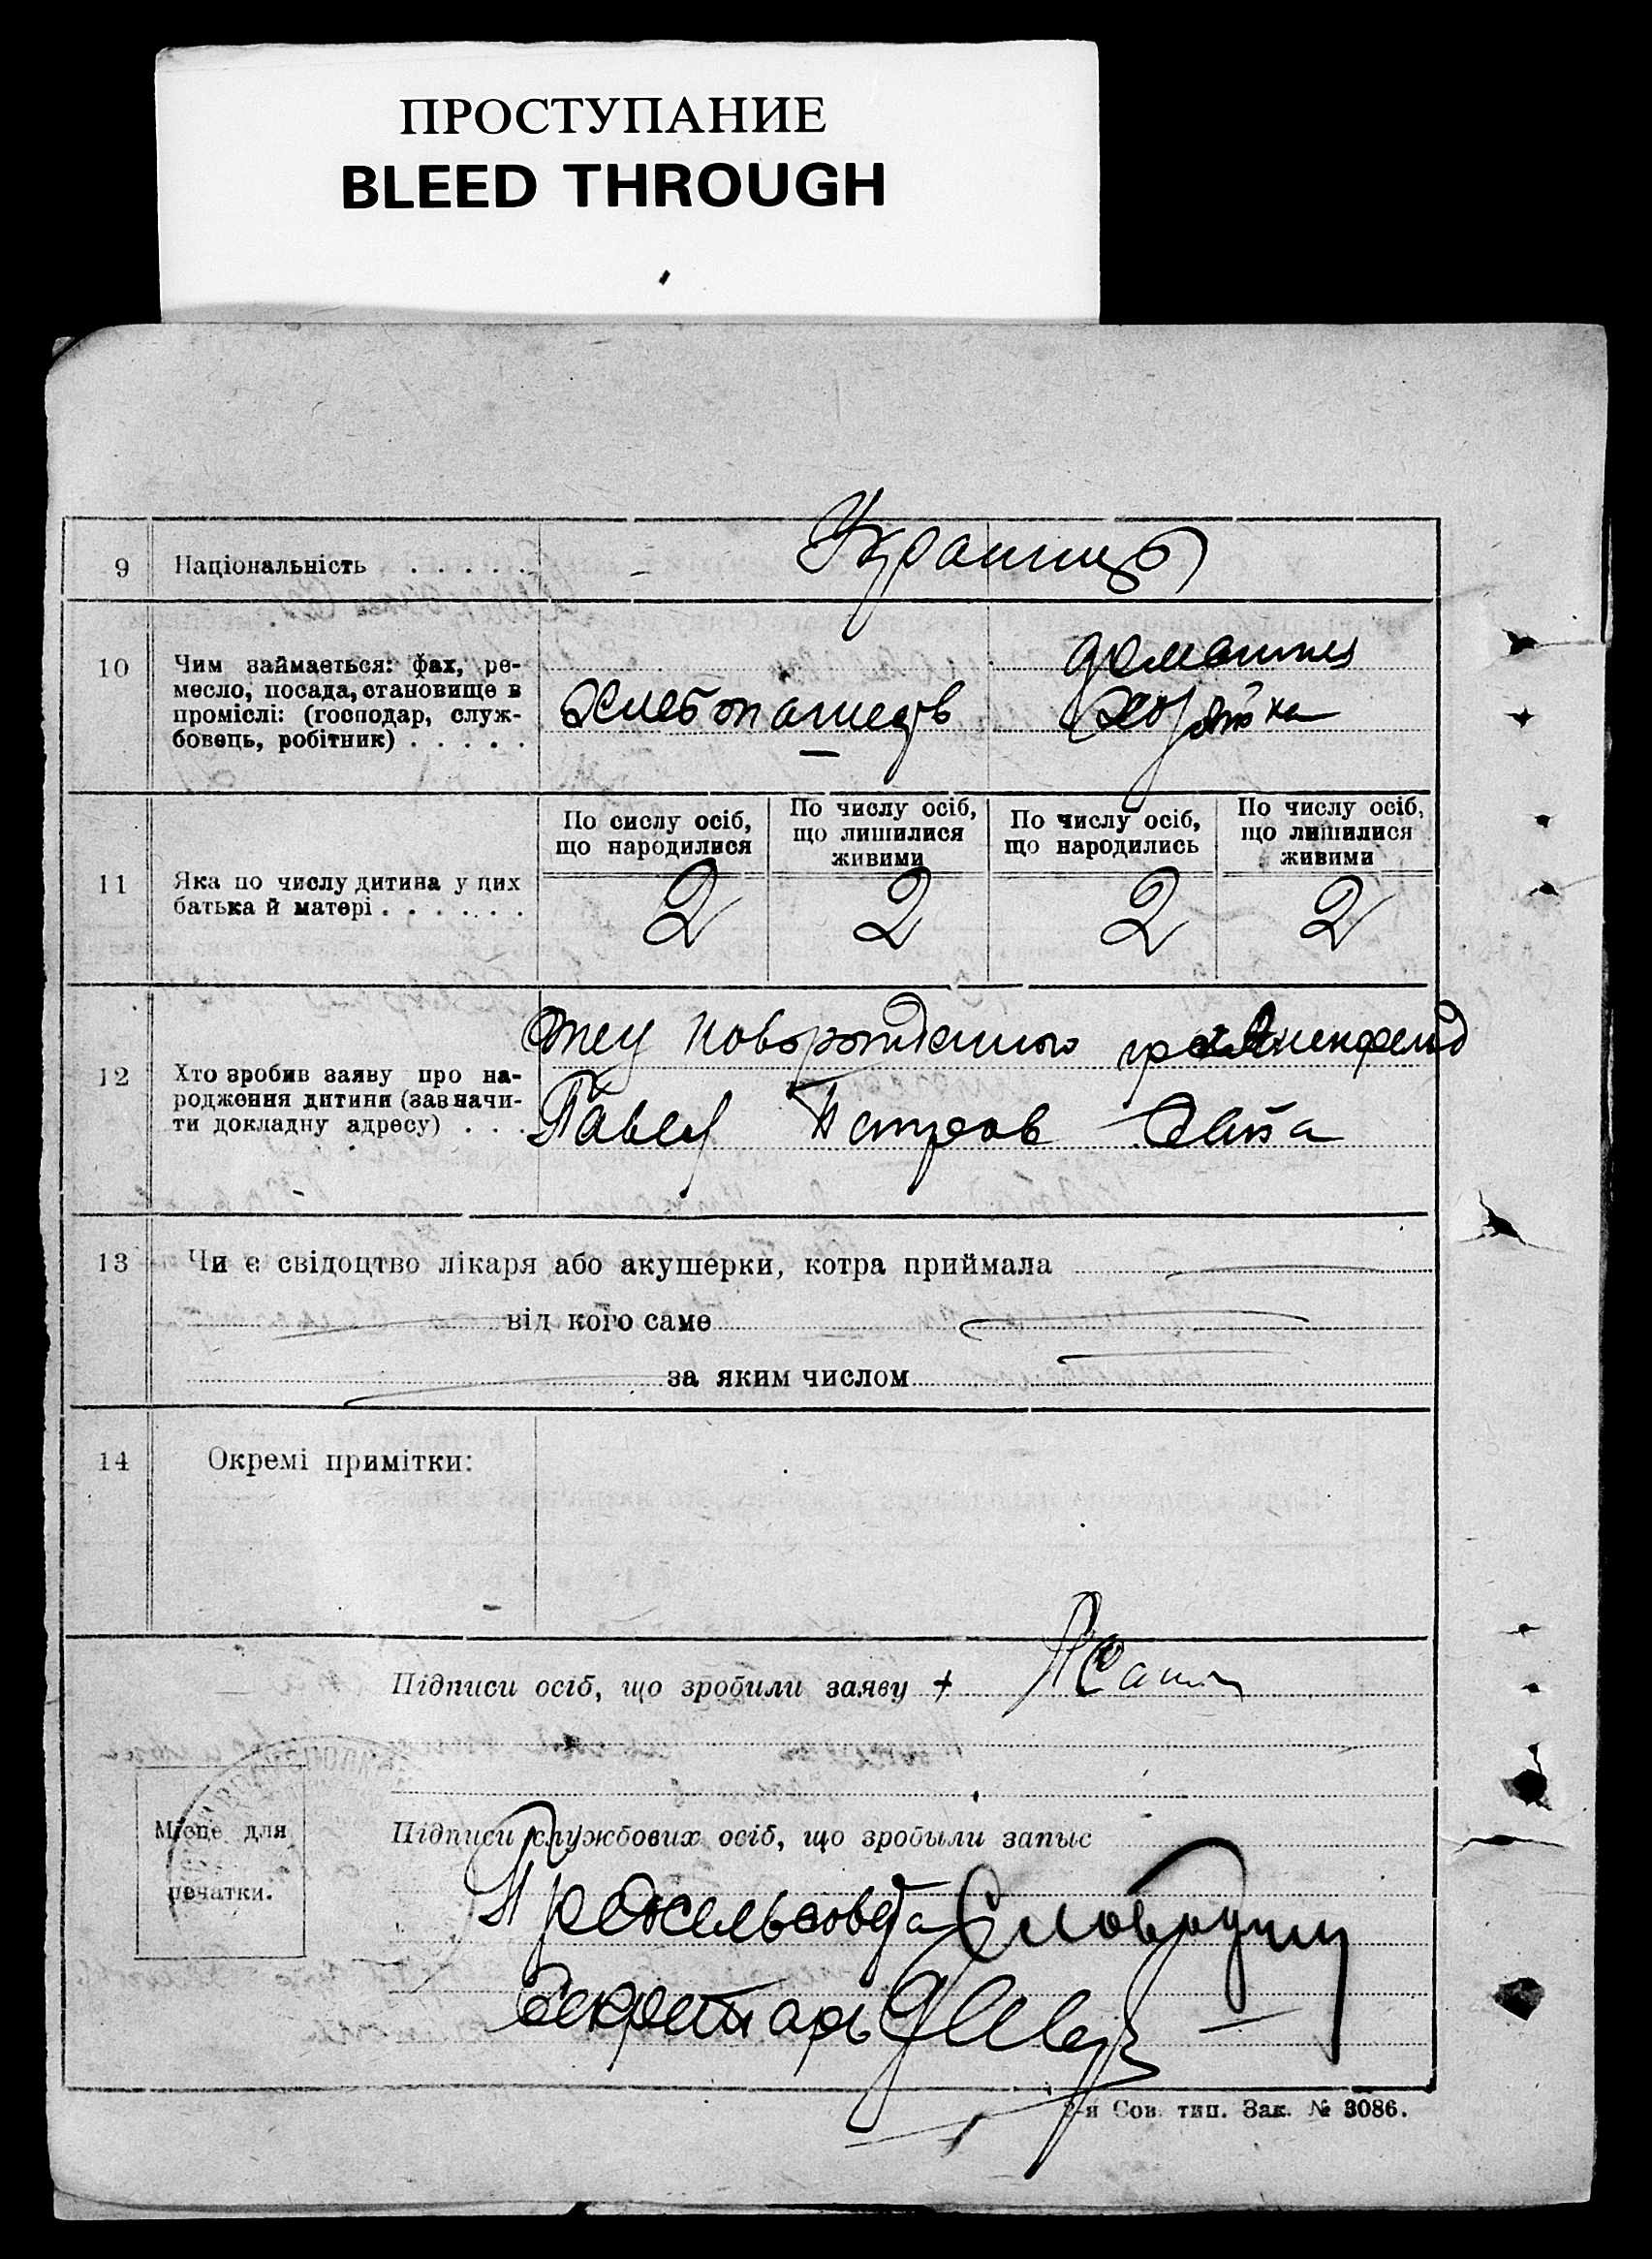 ПРОСТУПАНИЕ
BLEED THROUGH
9 Національність . . . . .
Украинц
10 Чим займається: фах, ре-
месло, посада, становище в
проміслі: (господар, служ-
бовець, робітник) . . . . .
хлебопашец
домашня
По сислу осіб,
що народилися
По числу осіб,
що лишилися
живими
По числу осіб,
що народились
По числу осіб,
що лишилися
живими
11 Яка по числу дитина у цих
батька й матері . . . . . .
2 2 2 2
12 Хто зробив заяву про на-
родження дитини (зазначи-
ти докладну адресу) . . .
Отец новорожденного
Павел Петров
13 Чи є свідоцтво лікаря або акушерки, котра приймала
від кого саме
за яким числом
14 Окремі примітки:
Підписи осіб, що зробили заяву +
Місце для
печатки.
Підписи службових осіб, що зробыли запыс
Предсельсовета
Секретарь
2-я Сов. тип. Зак. № 3086.